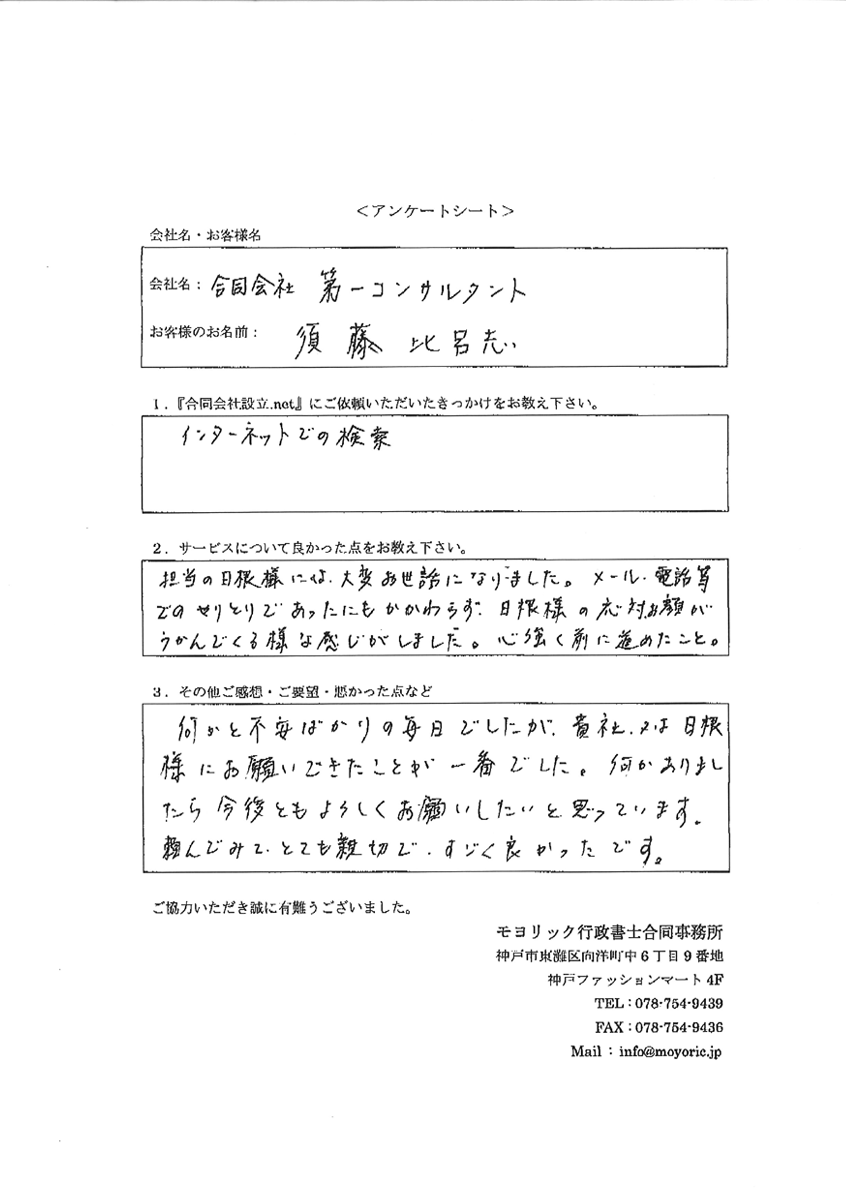 ＜アンケートシート＞
会社名・お客様名
会社名： 合同会社 第一コンサルタント
お客様のお名前： 須藤 比呂志
１．『合同会社設立.net』にご依頼いただいたきっかけをお教え下さい。
インターネットでの検索
２．サービスについて良かった点をお教え下さい。
担当の日根様には、大変お世話になりました。メール、電話等
でのやりとりであったにもかかわらず、日根様の応対お顔が
うかんでくる様な感じがしました。心強く前に進めたこと。
３．その他ご感想・ご要望・悪かった点など
何かと不安ばかりの毎日でしたが、貴社、又は日根
様にお願いできたことが一番でした。何かありまし
たら今後ともよろしくお願いしたいと思っています。
頼んでみて、とても親切で、すごく良かったです。
ご協力いただき誠に有難うございました。
モヨリック行政書士合同事務所
神戸市東灘区向洋町中６丁目９番地
神戸ファッションマート 4F
TEL：078-754-9439
FAX：078-754-9436
Mail：info@moyoric.jp